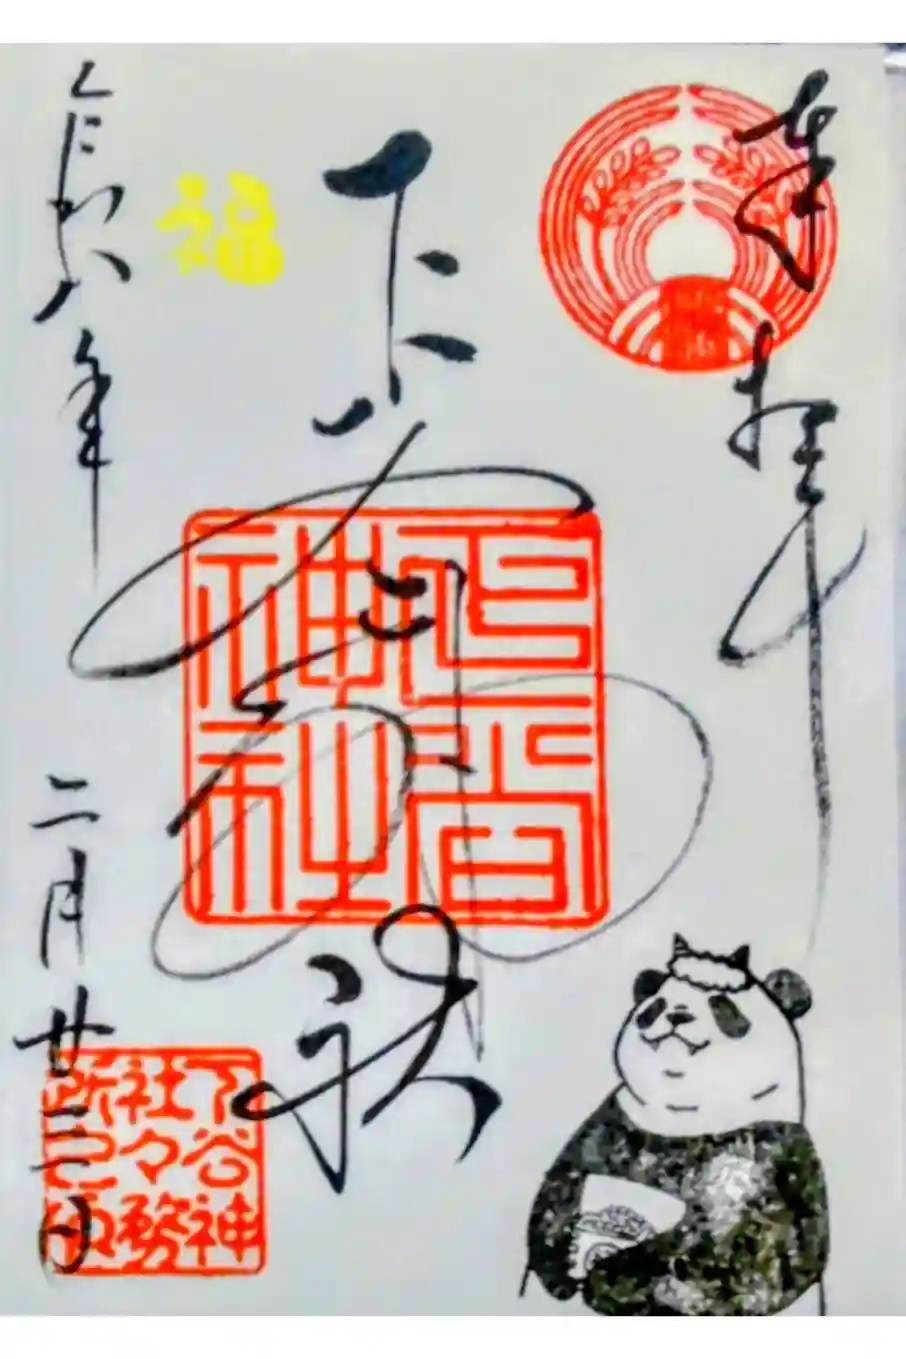 奉拝
下谷神社
福
下谷
神社
令和八年
二月廿二日
下谷神
社々務
所之印